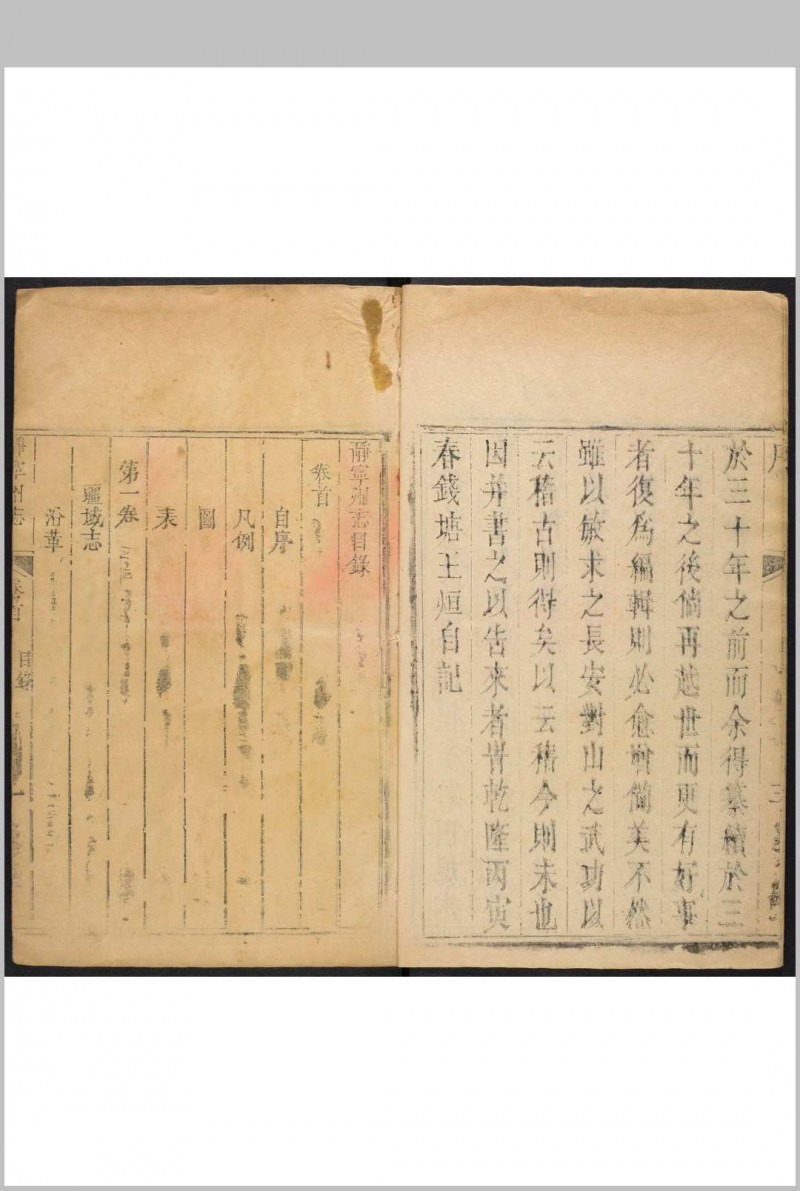 序
三
於三十年之前而余得纂續於三
十年之後倘再越世而更有好事
者復為編輯則必愈增備美不然
雖以敏求之長安對山之武功以
云稽古則得矣以云稽今則未也
因并書之以告來者旹乾隆丙寅
春錢塘王烜自記
靜寧州志目錄
卷首
自序
凡例
圖
表
第一卷
疆域志
沿革
靜寧州志
卷首
目錄
一